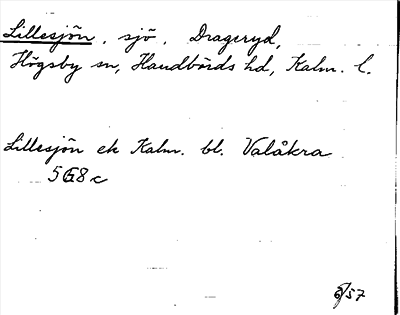 Lillesjön, sjö, Drageryd,
Högsby sn, Handbörds hd, Kalm. l.
Lillesjön ek Kalm. bl. Valåkra
5G8c
57